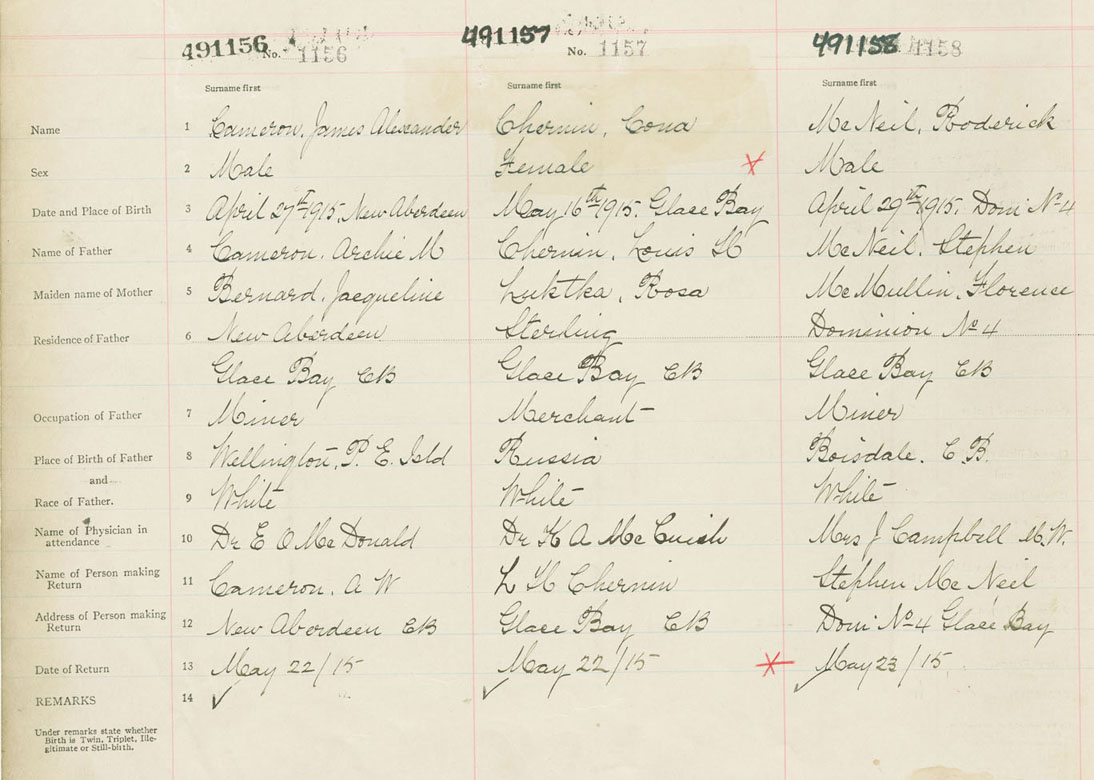 491156 491157 491158
No. 1156 No. 1157 1158
Surname first Surname first Surname first
Name 1 Cameron, James Alexander Chernin, Cona McNeil, Roderick
Sex 2 Male Female Male
Date and Place of Birth 3 April 27th 1915, New Aberdeen May 16th 1915. Glace Bay April 29th 1915. Dom No 4
Name of Father 4 Cameron, Archie M Chernin, Louis H McNeil, Stephen
Maiden name of Mother 5 Bernard, Jacqueline Luktka, Rosa McMullin, Florence
Residence of Father 6 New Aberdeen Sterling Dominion No 4
Glace Bay CB Glace Bay CB Glace Bay CB
Occupation of Father 7 Miner Merchant Miner
Place of Birth of Father 8 Wellington, P. E. Isld Russia Boisdale. C.B.
and
Race of Father. 9 White White White
Name of Physician in
attendance 10 Dr E O McDonald Dr K A McCuish Mrs J Campbell M.W.
Name of Person making
Return 11 Cameron, A W L H Chernin Stephen McNeil
Address of Person making
Return 12 New Aberdeen CB Glace Bay CB Dom No 4 Glace Bay
Date of Return 13 May 22/15 May 22/15 May 23/15
REMARKS 14
Under remarks state whether
Birth is Twin, Triplet, Ille-
gitimate or Still-birth.